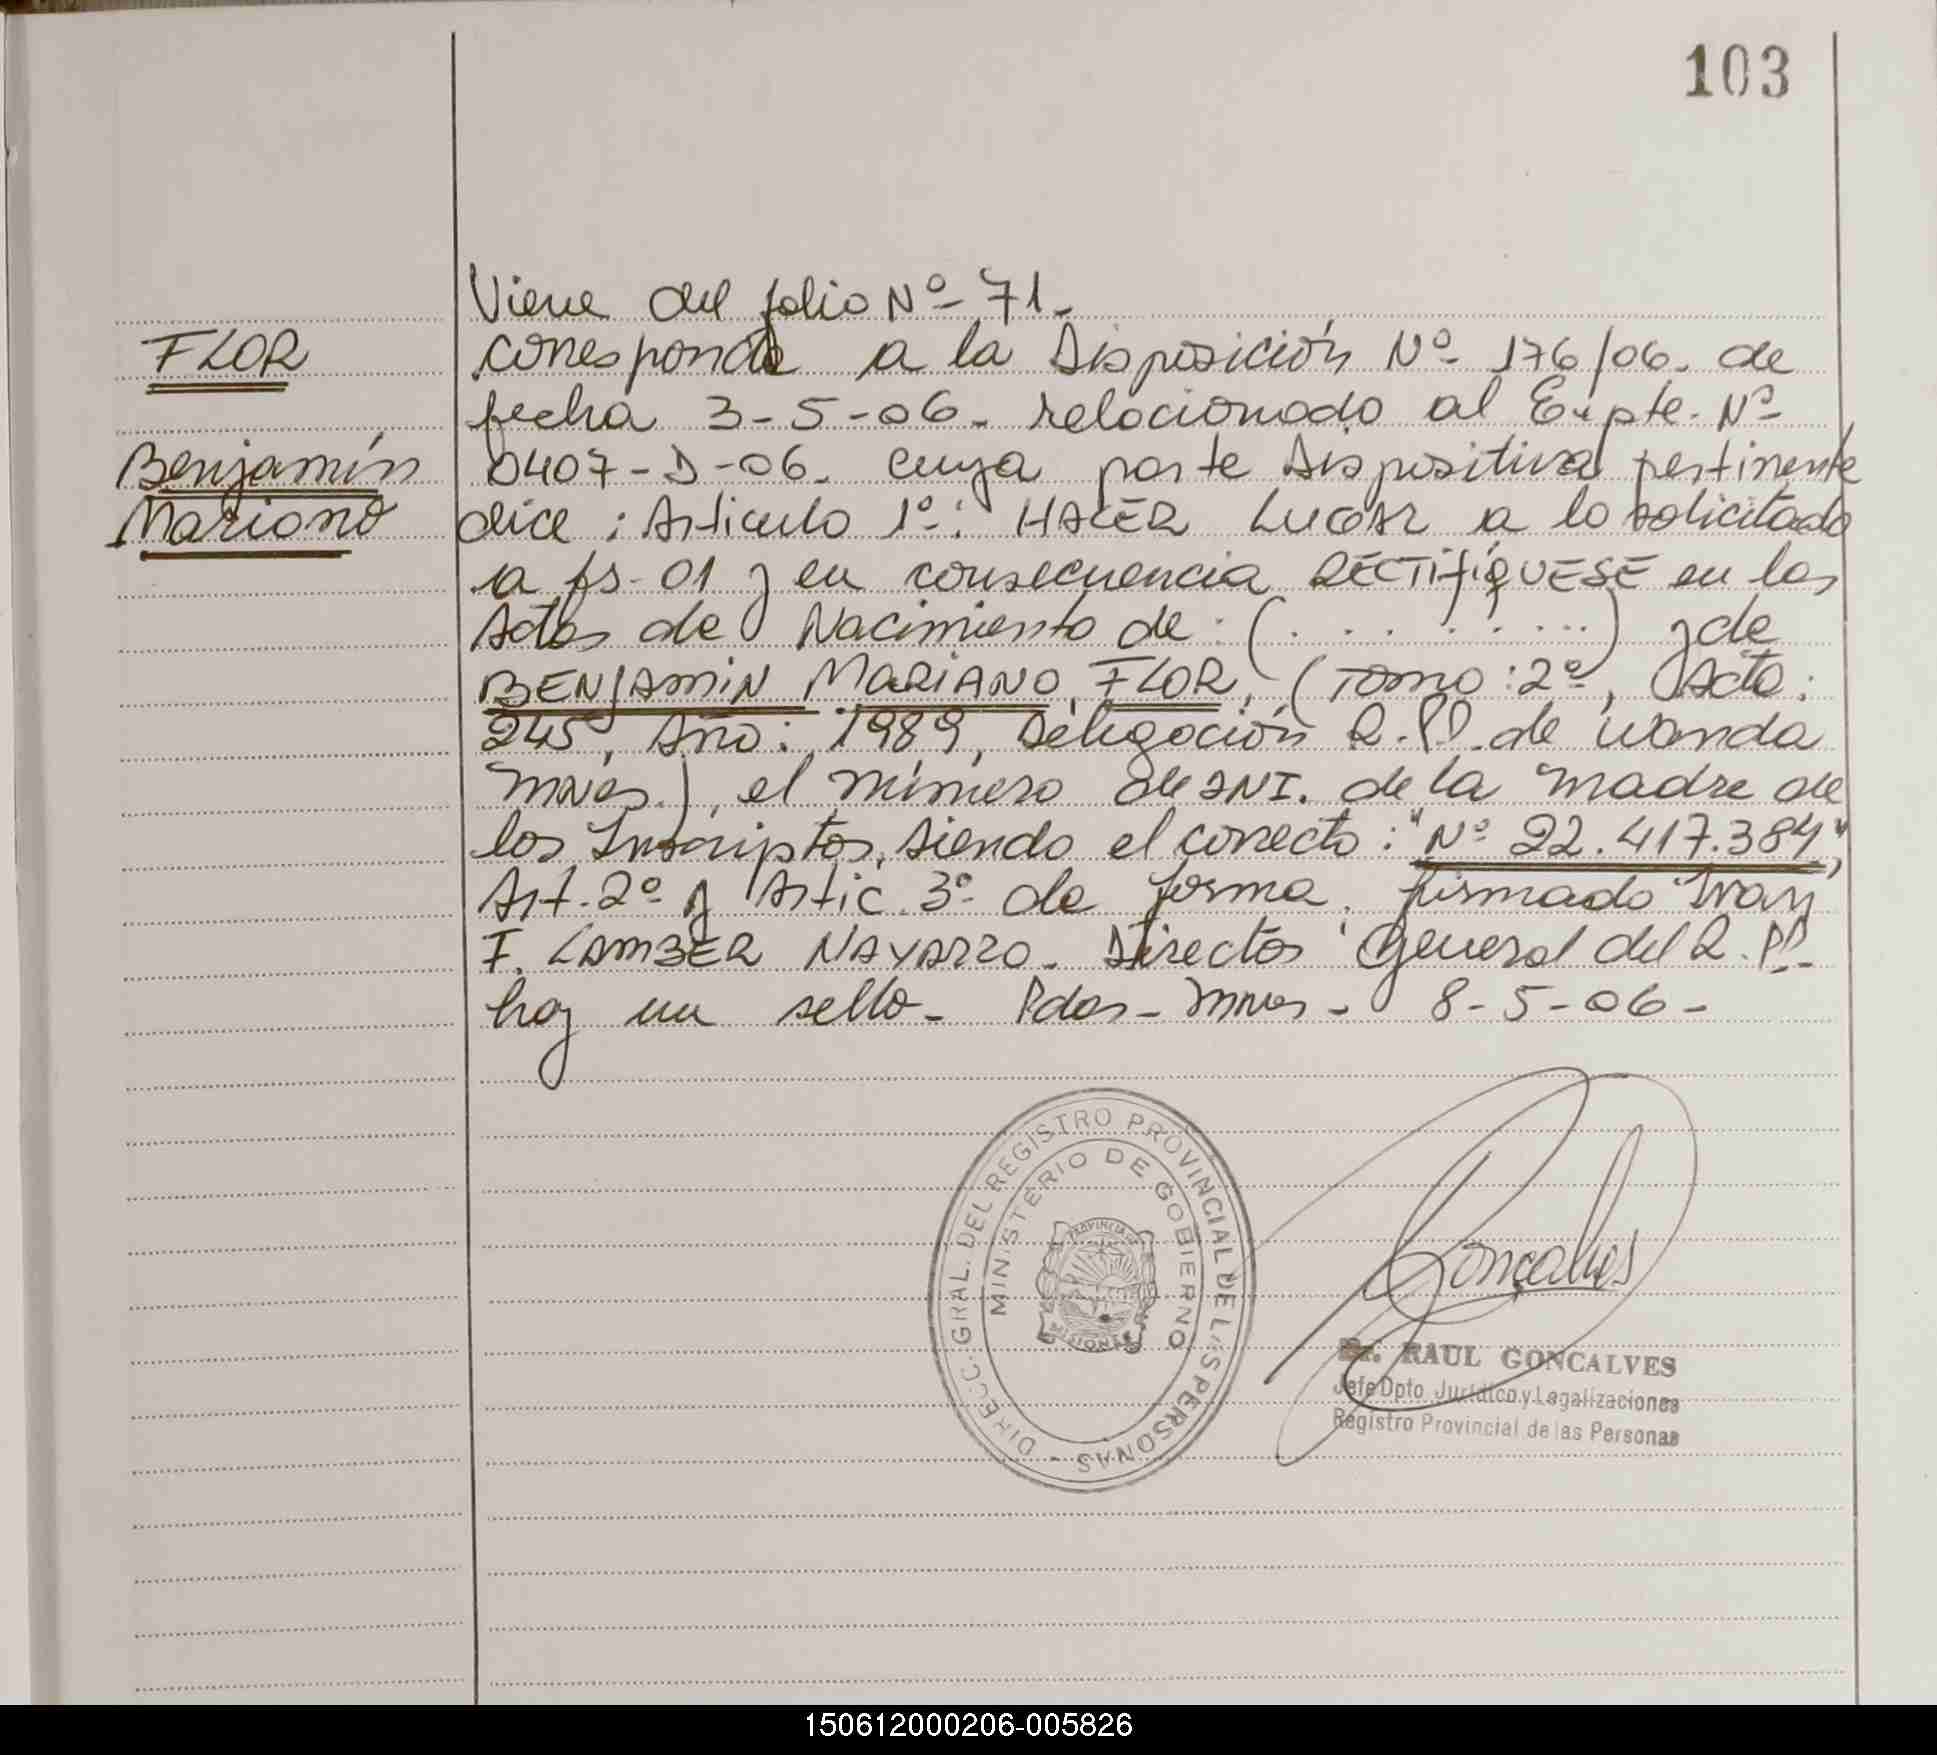 103
Viene del folio Nº 71-
FLOR
corresponde a la Disposición Nº 176/06. de
fecha 3-5-06- relacionado al Expte. Nº
Benjamín
0407-D-06. cuya parte Dispositiva pertinente
Mariano
dice: Articulo 1º: HACER LUGAR a lo solicitado
a fs-01 y en consecuencia RECTIFIQUESE en las
Actas de Nacimiento de: (..........) y de
BENJAMIN MARIANO FLOR, (Tomo: 2º, Acta:
245, Año: 1989, Delegación R.PP. de Wanda
Mnes.), el número de DNI. de la madre de
los Inscriptos, siendo el correcto: "Nº 22.417.384",
Art. 2º y Artic. 3º de forma. firmado Ivan
F. LAMBER NAVARRO- Director General del R.PP.
hay un sello- Pdas- Mnes- 8-5-06-
DIRECC. GRAL. DEL REGISTRO PROVINCIAL DE LAS PERSONAS -
MINISTERIO DE GOBIERNO
PROVINCIA
MISIONES
Goncalves
Dr. RAUL GONCALVES
Jefe Dpto. Jurídico y Legalizaciones
Registro Provincial de las Personas
150612000206-005826